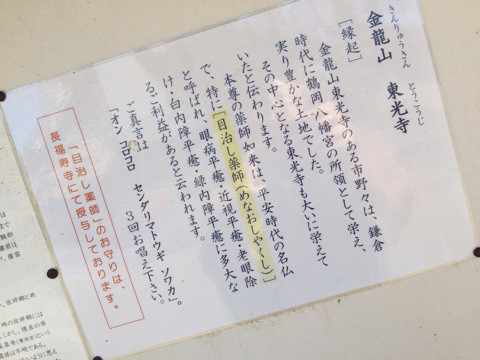 きんりゅうさん とうこうじ
金龍山 東光寺
［縁起］
金龍山東光寺のある市野々は、鎌倉
時代に鶴岡八幡宮の所領として栄え、
実り豊かな土地でした。
その中心となる東光寺も大いに栄えて
いたと伝わります。
本尊の薬師如来は、平安時代の名仏
で、特に「目治し薬師（めなおしやくし）」
と呼ばれ、眼病平癒・近視平癒・老眼除
け・白内障平癒・緑内障平癒に多大な
るご利益があると云われます。
ご真言は
「オン コロコロ センダリマトウギ ソワカ」。
３回お唱え下さい。
「目治し薬師」のお守りは、
長福寿寺にて授与しております。